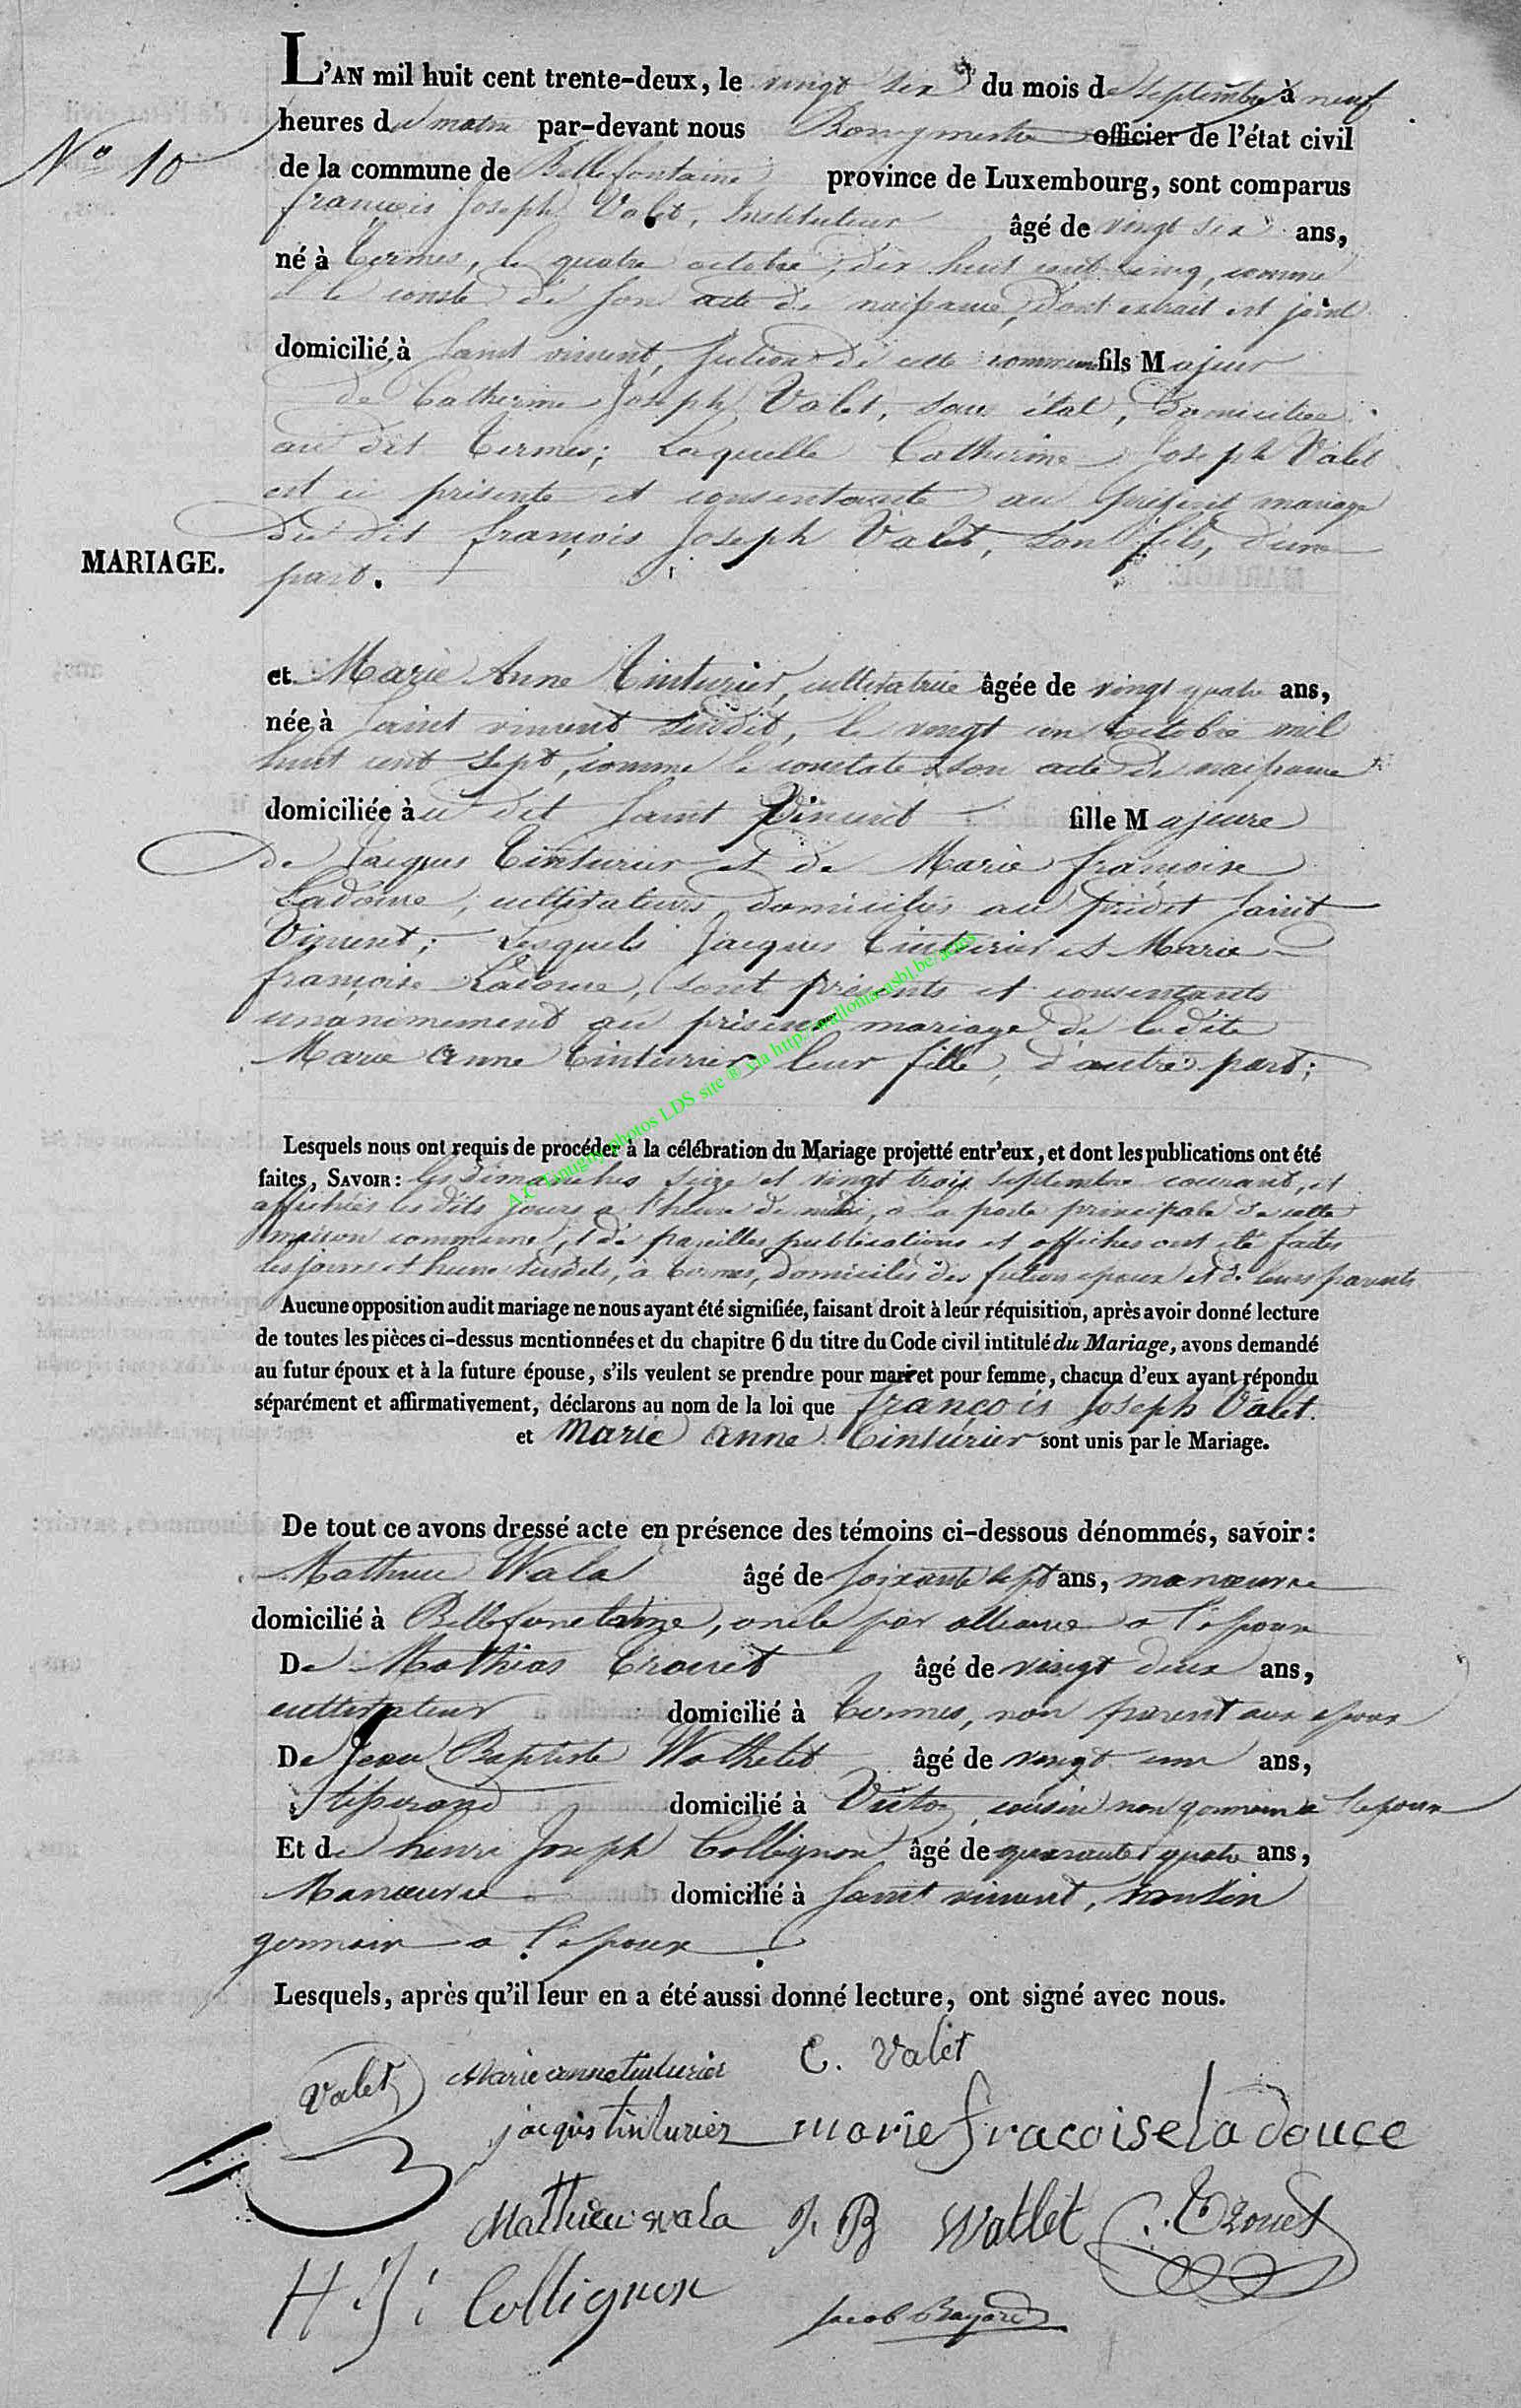 L'AN mil huit cent trente-deux, le vingt six du mois de septembre à neuf
heures du matin par-devant nous Bourgmestre officier de l'état civil
N° 10
de la commune de Bellefontaine province de Luxembourg, sont comparus
françois Joseph Valet, Instituteur âgé de vingt six ans,
né à Termes, le quatre octobre, dix huit cent cinq, comme
le conste de son acte de naissance, dont extrait est joint
domicilié à saint vincent, section de cette commune fils Majeur
de Catherine Joseph Valet, sans état, domiciliée
au dit Termes; Laquelle Catherine Joseph Valet
est ici présente et consentante au présent mariage
du dit françois Joseph Valet, son fils, d'une
MARIAGE.
part.
et Marie Anne Tinturier, cultivatrice âgée de vingt quatre ans,
née à saint vincent susdit, le vingt un octobre mil
huit cent sept, comme le constate son acte de naissance
domiciliée au dit saint Vincent fille Majeure
de Jacques Tinturier et de Marie françoise
Ladouce, cultivateurs domiciliés au prédit saint
Vincent; Lesquels Jacques Tinturier et Marie
françoise Ladouce, sont présents et consentants
unanimement au présent mariage de la dite
Marie Anne Tinturier, leur fille, d'autre part;
A.C. Tintigny photos LDS site ® cta http://wallonia-asbl.be/actes
Lesquels nous ont requis de procéder à la célébration du Mariage projetté entr'eux, et dont les publications ont été
faites, SAVOIR: les dimanches seize et vingt trois septembre courant, et
affichées les dits jours a l'heure de midi, à la porte principale de cette
maison commune, et de pareilles publications et affiches ont été faites
les jours et heure susdits, à Termes, domiciles des futurs epoux et de leurs parents
Aucune opposition audit mariage ne nous ayant été signifiée, faisant droit à leur réquisition, après avoir donné lecture
de toutes les pièces ci-dessus mentionnées et du chapitre 6 du titre du Code civil intitulé du Mariage, avons demandé
au futur époux et à la future épouse, s'ils veulent se prendre pour mari et pour femme, chacun d'eux ayant répondu
séparément et affirmativement, déclarons au nom de la loi que françois Joseph Valet.
et Marie anne Tinturier sont unis par le Mariage.
De tout ce avons dressé acte en présence des témoins ci-dessous dénommés, savoir:
Mathieu Wala âgé de soixante sept ans, manœuvre
domicilié à Bellefontaine, oncle par alliance a l'epoux
De Mathias Trouet âgé de vingt deux ans,
cultivateur domicilié à Termes, non parent aux epoux
De Jean Baptiste Wathelet âgé de vingt un ans,
tisserand domicilié à cousin non germain a l'epoux
Et de henri Joseph Collignon âgé de quarante quatre ans,
Manœuvre domicilié à saint vincent, cousin
germain a l'epoux
Lesquels, après qu'il leur en a été aussi donné lecture, ont signé avec nous.
Valet Marie anne tinturier C. Valet
jacques tinturier marie fracoise La douce
Mathieu wala J. B Watlet Trouet
H. J. Collignon Jacob Bayard